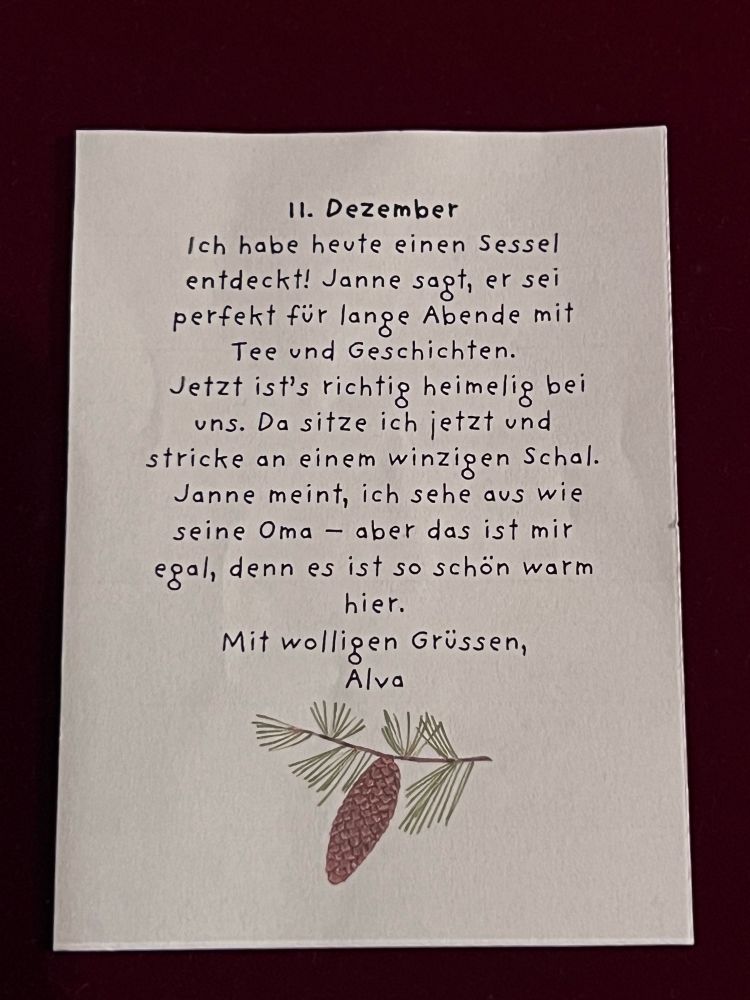 11. Dezember
Ich habe heute einen Sessel
entdeckt! Janne sagt, er sei
perfekt für lange Abende mit
Tee und Geschichten.
Jetzt ist's richtig heimelig bei
uns. Da sitze ich jetzt und
stricke an einem winzigen Schal.
Janne meint, ich sehe aus wie
seine Oma – aber das ist mir
egal, denn es ist so schön warm
hier.
Mit wolligen Grüssen,
Alva